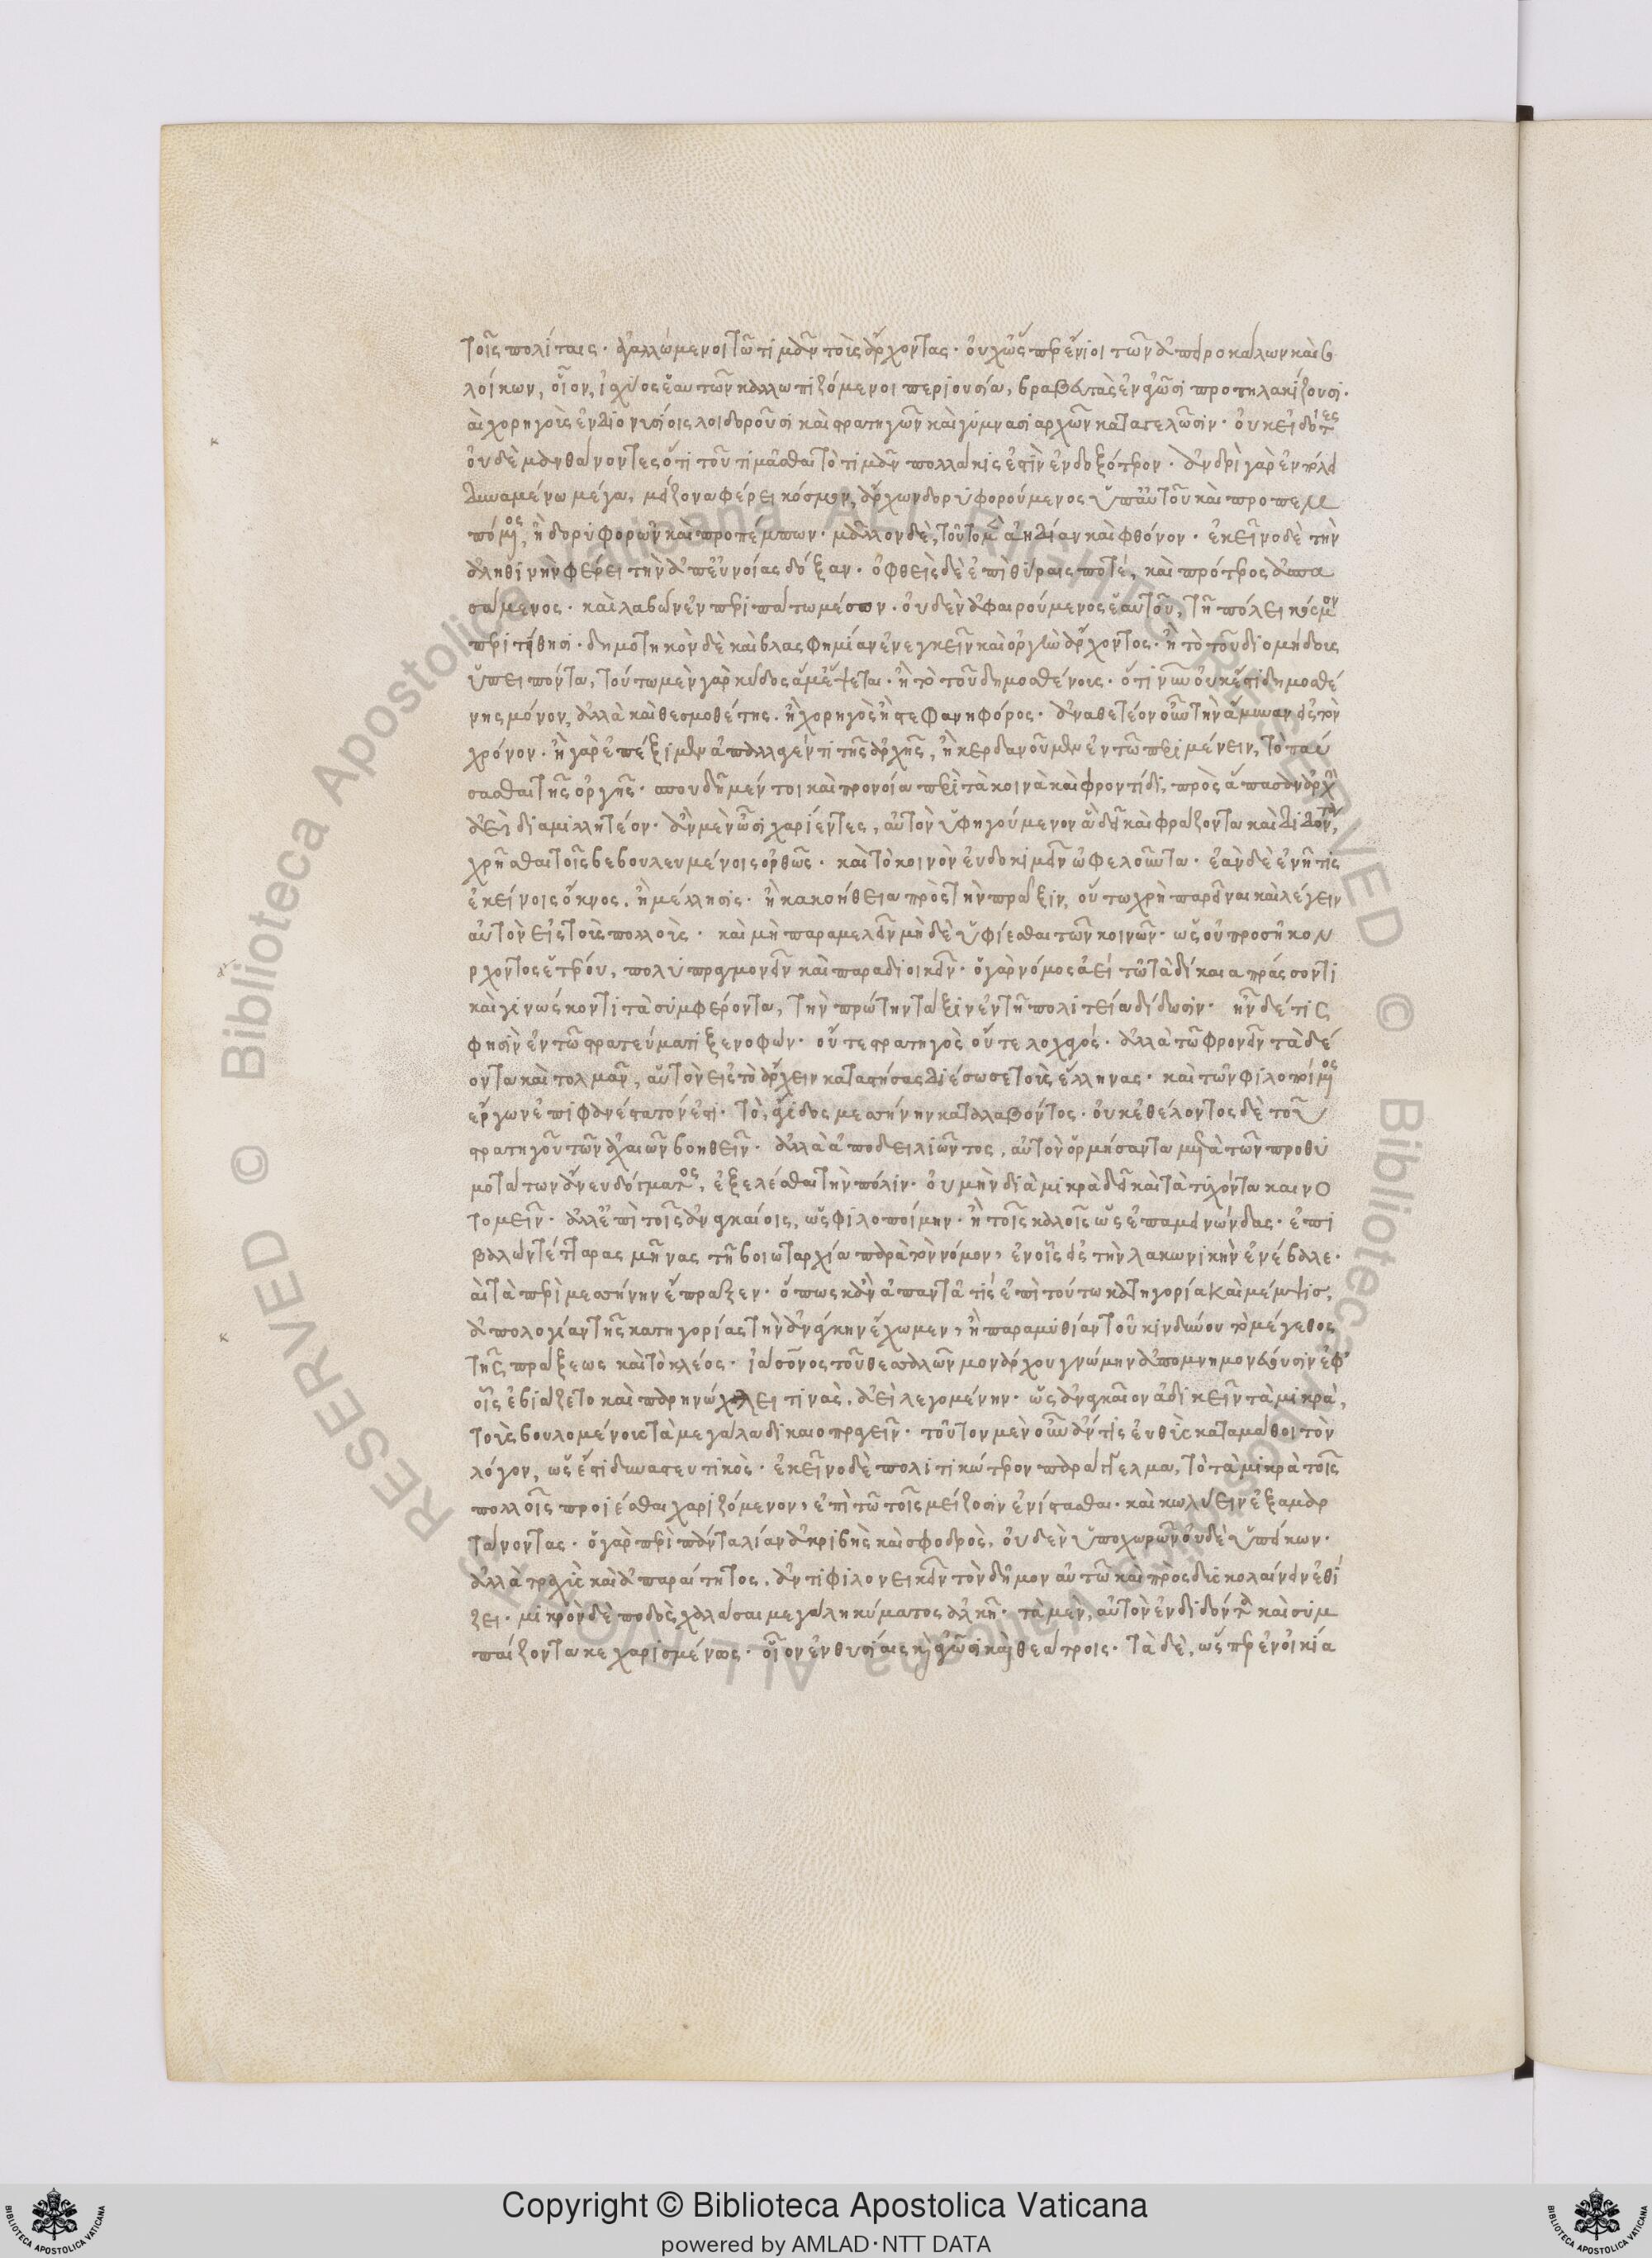 τοῖς πολίταις· ἀγαλλώμενοι τῶ τιμᾶν τοὺς ἄρχοντας· οὐχ ὥσπερ ἔνιοι τῶν ἀπειροκάλων καὶ σο
λοίκων, οἷον, ἰσχύος ἑαυτῶν καλλωπιζόμενοι περιουσία, βραβευτὰς ἐν ἀγῶσι προπηλακίζουσι·
καὶ χορηγοὺς ἐν διονυσίοις λοιδοροῦσι καὶ στρατηγῶν καὶ γυμνασιάρχων καταγελῶσιν· οὐκ εἰδότες
οὐδὲ μανθάνοντες ὅτι τοῦ τιμᾶσθαι τὸ τιμᾶν πολλάκις ἐστὶν ἐνδοξότερον· ἀνδρὶ γὰρ ἐν πόλει
δυναμένω μέγα, μείζονα φέρει κόσμον, ἄρχων δορυφορούμενος ὑπ' αὐτοῦ καὶ προπεμ
πόμενος, ἢ δορυφορῶν καὶ προπέμπων· μᾶλλον δὲ, τοῦτο μὲν ἀηδίαν καὶ φθόνον· ἐκεῖνο δὲ τὴν
ἀληθινὴν φέρει τὴν ἀπ' εὐνοίας δόξαν· ὀφθεὶς δὲ ἐπὶ θύραις ποτέ, καὶ πρότερος ἀσπα
σάμενος· καὶ λαβὼν ἐν περιπάτω μέσον· οὐδὲν ἀφαιρούμενος ἑαυτοῦ, τῇ πόλει κόσμον
περιτίθησι· δημοτικὸν δὲ καὶ βλασφημίαν ἐνεγκεῖν καὶ ὀργὴν ἄρχοντος· ἢ τὸ τοῦ διομήδους
ὑπειπόντα, τούτω μὲν γὰρ κῦδος ἅμ' ἕψεται· ἢ τὸ τοῦ δημοσθένους· ὅτι νῦν οὐκ ἔστι δημοσθέ
νης μόνον, ἀλλὰ καὶ θεσμοθέτης· ἢ χορηγὸς ἢ στεφανηφόρος· ἀναθετέον οὖν τὴν ἄμυναν εἰς τὸν
χρόνον· ἢ γὰρ ἐπέξιμεν ἀπαλλαγέντι τῆς ἀρχῆς, ἢ κερδανοῦμεν ἐν τῶ περιμένειν, τὸ παύ
σασθαι τῆς ὀργῆς· σπουδῇ μέντοι καὶ προνοία περὶ τὰ κοινὰ καὶ φροντίδι, πρὸς ἅπασαν ἀρχὴν
ἀεὶ διαμιλλητέον· ἂν μὲν ὦσι χαρίεντες, αὐτὸν ὑφηγούμενον ἃ δεῖ καὶ φράζοντα καὶ διδόντα,
χρῆσθαι τοῖς βεβουλευμένοις ὀρθῶς· καὶ τὸ κοινὸν εὐδοκιμεῖν ὠφελοῦντα· ἐὰν δὲ ἐνῇ τις
ἐκείνοις ὄκνος, ἢ μέλλησις· ἢ κακοήθεια πρὸς τὴν πρᾶξιν, οὕτω χρὴ παρεῖναι καὶ λέγειν
αὐτὸν εἰς τοὺς πολλοὺς· καὶ μὴ παραμελεῖν μὴ δὲ ὑφίεσθαι τῶν κοινῶν· ὡς οὐ προσῆκον
ἄρχοντος ἑτέρου, πολυπραγμονεῖν καὶ παραδιοικεῖν· ὁ γὰρ νόμος ἀεὶ τῶ τὰ δίκαια πράσσοντι
καὶ γινώσκοντι τὰ συμφέροντα, τὴν πρώτην τάξιν ἐν τῇ πολιτεία δίδωσιν· ἦν δέ τις
φησὶν ἐν τῶ στρατεύματι ξενοφῶν· οὔτε στρατηγὸς οὔτε λοχαγός· ἀλλὰ τῶ φρονεῖν τὰ δέ
οντα καὶ τολμᾶν, αὑτὸν εἰς τὸ ἄρχειν καταστήσας διέσωσε τοὺς ἕλληνας· καὶ τῶν φιλοποίμενος
ἔργων ἐπιφανέστατόν ἐστι· τὸ, ἄγιδος μεσσήνην καταλαβόντος· οὐκ ἐθέλοντος δὲ τοῦ
στρατηγοῦ τῶν ἀχαιῶν βοηθεῖν· ἀλλὰ ἀποδειλιῶντος, αὐτὸν ὁρμήσαντα μετὰ τῶν προθυ
μοτάτων ἄνευ δόγματος, ἐξελέσθαι τὴν πόλιν· οὐ μὴν διὰ μικρὰ δεῖ καὶ τὰ τυχόντα καινο
τομεῖν· ἀλλ' ἐπὶ τοῖς ἀναγκαίοις, ὡς φιλοποίμην· ἢ τοῖς καλοῖς ὡς ἐπαμεινώνδας· ἐπι
βαλὼν τέτταρας μῆνας τῇ βοιωταρχία παρὰ τὸν νόμον, ἐν οἷς εἰς τὴν λακωνικὴν ἐνέβαλε·
καὶ τὰ περὶ μεσσήνην ἔπραξεν· ὅπως κἂν ἀπαντᾶ τις ἐπὶ τούτω κατηγορία καὶ μέμψις,
ἀπολογίαν τῆς κατηγορίας τὴν ἀνάγκην ἔχωμεν, ἢ παραμυθίαν τοῦ κινδύνου τὸ μέγεθος
τῆς πράξεως καὶ τὸ κλέος· ἰάσονος τοῦ θεσσαλῶν μονάρχου γνώμην ἀπομνημονεύουσιν ἐφ'
οἷς ἐβιάζετο καὶ παρηνώχλει τινὰς, ἀεὶ λεγομένην· ὡς ἀναγκαῖον ἀδικεῖν τὰ μικρὰ,
τοὺς βουλομένους τὰ μεγάλα δικαιοπραγεῖν· τοῦτον μὲν οὖν ἄν τις εὐθὺς καταμάθοι τὸν
λόγον, ὡς ἔστι δυναστευτικὸς· ἐκεῖνο δὲ πολιτικώτερον παράγγελμα, τὸ τὰ μικρὰ τοῖς
πολλοῖς προΐεσθαι χαριζόμενον, ἐπὶ τῶ τοῖς μείζοσιν ἐνίστασθαι· καὶ κωλύειν ἐξαμαρ
τάνοντας· ὁ γὰρ περὶ πάντα λίαν ἀκριβὴς καὶ σφοδρὸς, οὐδὲν ὑποχωρῶν οὐδὲ ὑπείκων·
ἀλλὰ τραχὺς καὶ ἀπαραίτητος, ἀντιφιλονεικεῖν τὸν δῆμον αὐτῶ καὶ προσδυσκολαίνειν ἐθί
ζει· μικρὸν δὲ ποδὸς χαλάσαι μεγάλη κύματος ἀλκῇ· τὰ μὲν, αὐτὸν ἐνδιδόντα καὶ συμ
παίζοντα κεχαρισμένως· οἷον ἐν θυσίαις καὶ ἀγῶσι καὶ θεάτροις· τὰ δὲ, ὥσπερ ἐν οἰκία
Copyright © Biblioteca Apostolica Vaticana
powered by AMLAD·NTT DATA